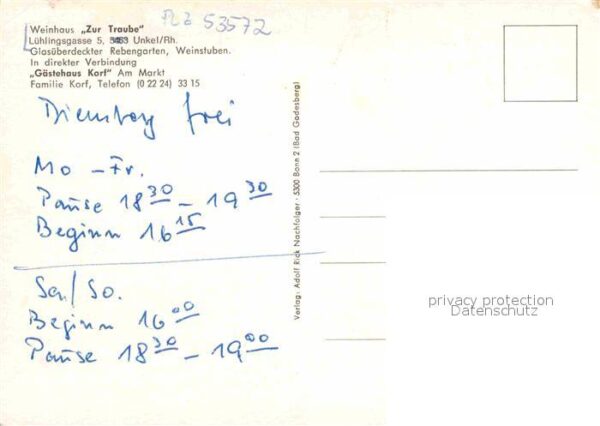 PLZ 53572
Weinhaus „Zur Traube“
Lühlingsgasse 5, 5463 Unkel/Rh.
Glasüberdeckter Rebengarten, Weinstuben.
In direkter Verbindung
„Gästehaus Korf“ Am Markt
Familie Korf, Telefon (0 22 24) 33 15
Dienstag frei
Mo – Fr.
Pause 18 30 – 19 30
Beginn 16 15
Sa/ So.
Beginn 16 00
Pause 18 30 – 19 00
Verlag: Adolf Rick Nachfolger · 5300 Bonn 2 (Bad Godesberg)
privacy protection
Datenschutz